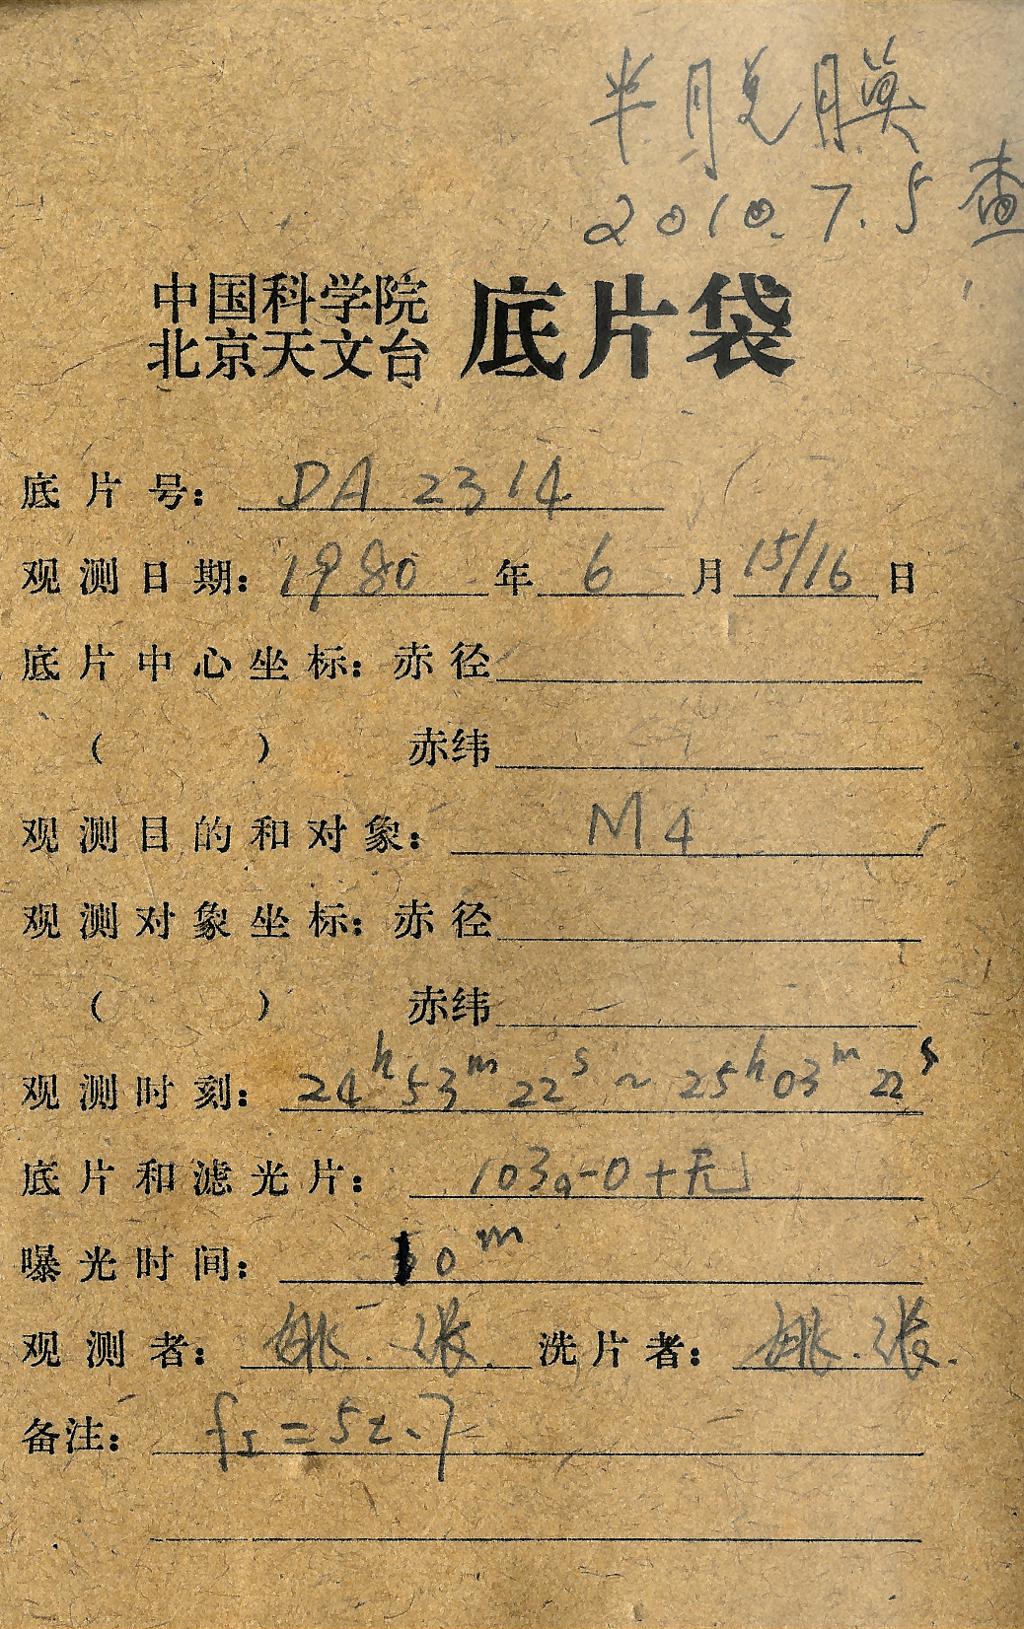 半月兑月莫
2010.7.5 查
中国科学院
北京天文台 底片袋
底片号: DA 2314
观测日期: 1980 年 6 月 15/16 日
底片中心坐标: 赤径
( ) 赤纬
观测目的和对象: M4
观测对象坐标: 赤径
( ) 赤纬
观测时刻: 24h53m22s ~ 25h03m22s
底片和滤光片: 103a-O+无
曝光时间: 10m
观测者: 姚.张. 洗片者: 姚.张.
备注: fI=52.7